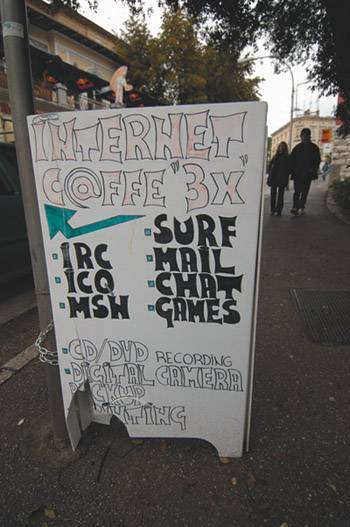 INTERNET
C@FFE "3X"
SURF
IRC MAIL
ICQ CHAT
MSN GAMES
CD/DVD RECORDING
DIGITAL CAMERA